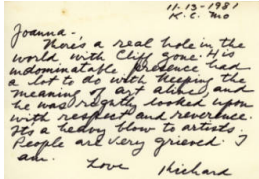 11-13-1981
K.C. Mo
Joanna-,
There's a real hole in the
world with Cliff gone. His
indominatable presence had
a lot to do with keeping the
meaning of art alive, and
he was rightly looked upon
with respect and reverence.
Its a heavy blow to artists.
People are very grieved. I
am.
Love
Richard